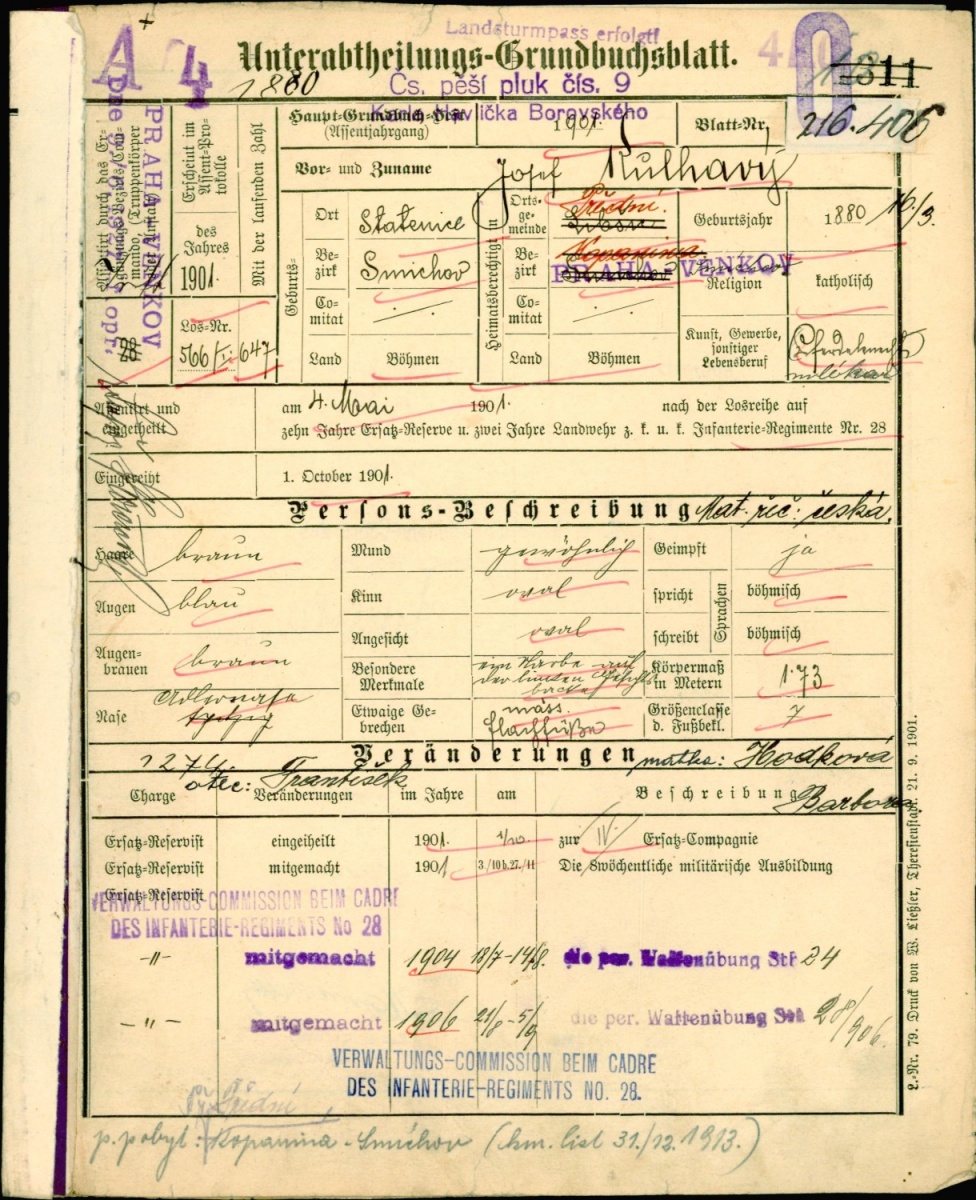 Landsturmpass erfolgt!
A 4
Unterabtheilungs-Grundbuchsblatt.
1880
Čs. pěší pluk čís. 9
Karla Havlíčka Borovského
311
216.406
Haupt-Grundbuch-Heft
(Assentjahrgang)
1901.
Blatt-Nr.
Vor- und Zuname
Josef Kulhavý
Assentirt durch das Ergänzungs-Bezirks-Commando (Truppenkörper
PRAHA VENKOV
Erscheint im Assent-Protokolle
des Jahres
1901
Mit der laufenden Zahl
Los-Nr.
566/I. 647
Geburts-
Ort
Statenice
Bezirk
Smichov
Comitat
Land
Böhmen
Heimatsberechtigt in
Ortsgemeinde
Přední
Bezirk
Kopanina
PRAHA-VENKOV
Comitat
Land
Böhmen
Geburtsjahr
1880 16/3.
Religion
katholisch
Kunst, Gewerbe,
sonstiger
Lebensberuf
Pferdeknecht
mlékař
Assentirt und
eingetheilt
am 4. Mai 1901. nach der Losreihe auf
zehn Jahre Ersatz-Reserve u. zwei Jahre Landwehr z. k. u. k. Infanterie-Regimente Nr. 28
Eingereiht
1. October 1901.
Persons-Beschreibung Mat. řeč: česká.
Haare braun
Mund gewöhnlich
Geimpft ja
Augen blau
Kinn oval
spricht böhmisch
Sprachen
Angesicht oval
schreibt böhmisch
Augenbrauen
braun
Besondere
Merkmale
ein Narbe auf
der linken Gesichts
backe
Körpermaß
in Metern
1·73
Nase
Adlernase
spitzig
Etwaige Gebrechen
mäss.
Flachfüße
Größenclasse
d. Fußbekl.
7
Veränderungen matka: Hodková
Barbora
1274. otec: František
Charge Veränderungen im Jahre am Beschreibung
Ersatz-Reservist eingeiheilt 1901. 1/10. zur IV. Ersatz-Compagnie
Ersatz-Reservist mitgemacht 1901 3./10 b. 27./11 Die 8wöchentliche militärische Ausbildung
Ersatz-Reservist
VERWALTUNGS-COMMISSION BEIM CADRE
DES INFANTERIE-REGIMENTS No 28
-"- mitgemacht 1904 18/7-14/8. die per. Waffenübung Stß 24
-"- mitgemacht 1906 21/8-5/9 die per. Waffenübung Stß 28/906.
VERWALTUNGS-COMMISSION BEIM CADRE
DES INFANTERIE-REGIMENTS NO. 28.
Př. Přední
p. pobyt: Kopanina - Smíchov (km. list 31./12. 1913.)
L.-Nr. 79. Druck von W. Ließler, Theresienstadt. 21. 9. 1901.